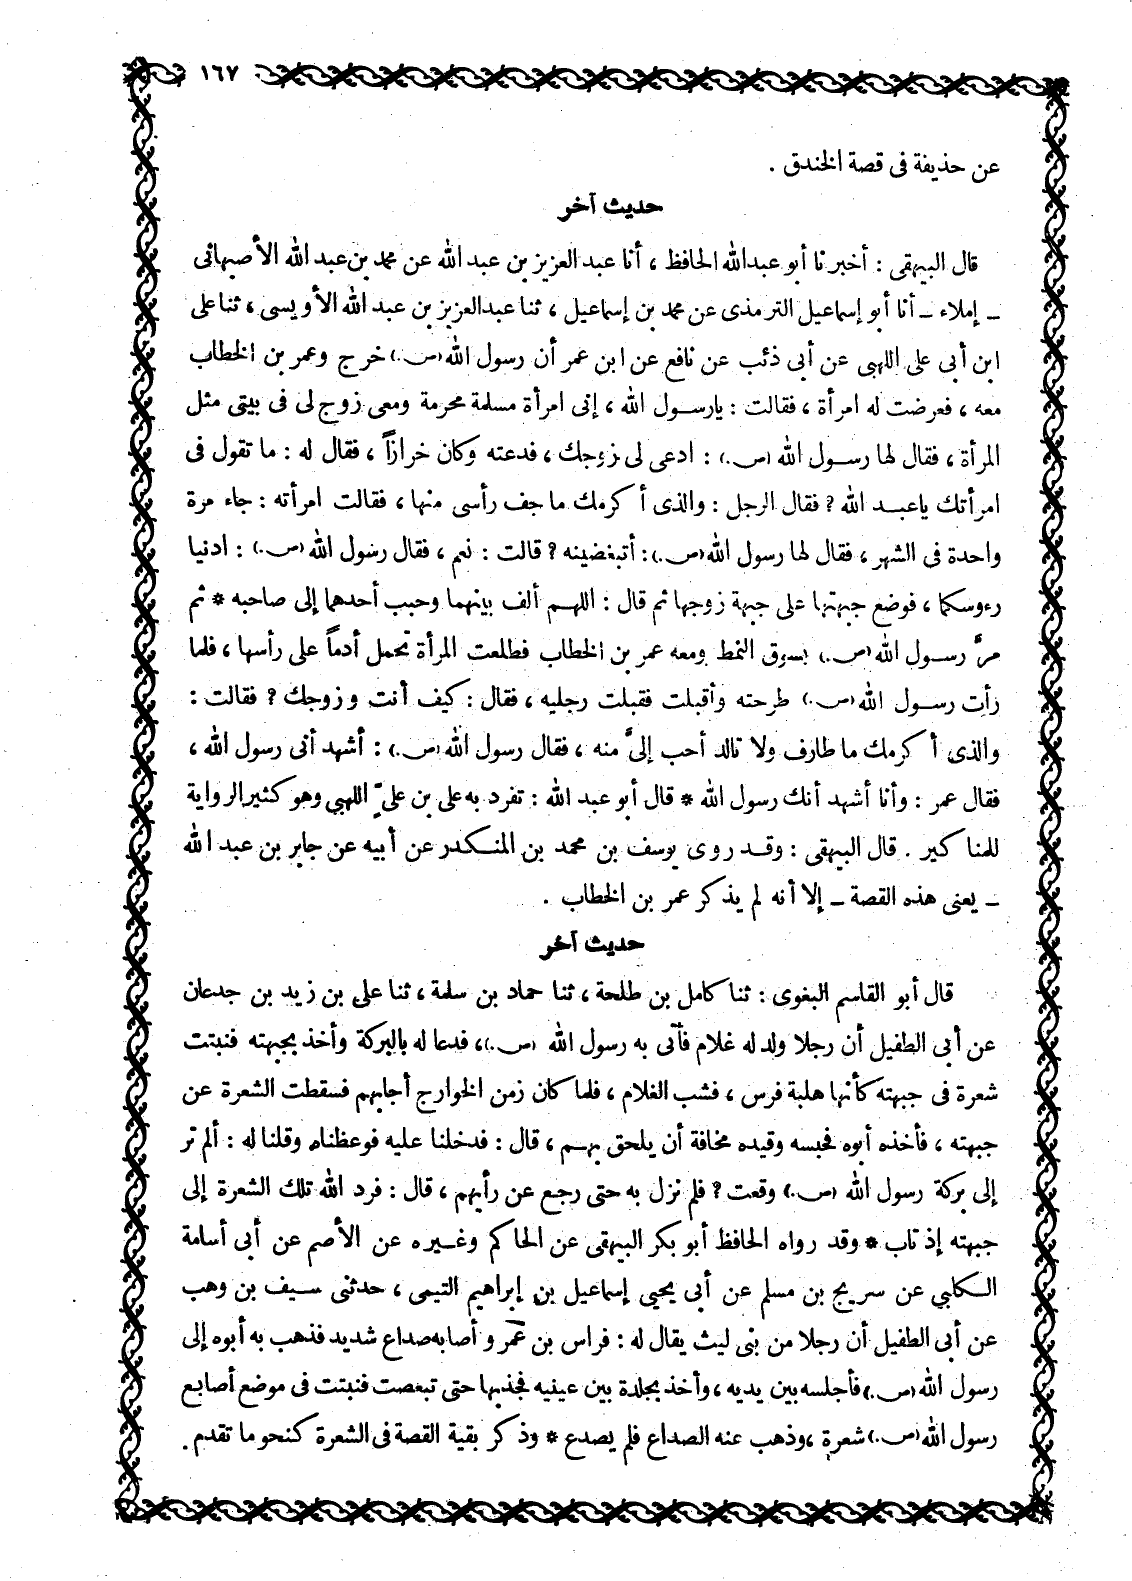 ١٦٧
عن حذيفة فى قصة الخندق .
حديث آخر
قال البيهقى : أخبرنا أبو عبدالله الحافظ ، أنا عبد العزيز بن عبد الله عن محمد بن عبد الله الأصبهانى
ـ إملاء ـ أنا أبو إسماعيل الترمذى عن محمد بن إسماعيل ، ثنا عبدالعزيز بن عبد الله الأويسى ، ثنا على
ابن أبى على اللهبى عن أبى ذئب عن نافع عن ابن عمر أن رسول الله (ص.) خرج وعمر بن الخطاب
معه ، فعرضت له امرأة ، فقالت : يارسول الله ، إنى امرأة مسلمة محرمة ومعى زوج لى فى بيتى مثل
المرأة ، فقال لها رسول الله (ص.) : ادعى لى زوجك ، فدعته وكان خرازاً ، فقال له : ما تقول فى
امرأتك ياعبد الله ? فقال الرجل : والذى أكرمك ما جف رأسى منها ، فقالت امرأته : جاء مرة
واحدة فى الشهر ، فقال لها رسول الله (ص.) : أتبغضينه ? قالت : نعم ، فقال رسول الله (ص.) : ادنيا
رءوسكما ، فوضع جبهتها على جبهة زوجها ثم قال : اللهم ألف بينهما وحبب أحدهما إلى صاحبه * ثم
مرَّ رسول الله (ص.) بسوق النمط ومعه عمر بن الخطاب فطلعت المرأة تحمل أدماً على رأسها ، فلما
رأت رسول الله (ص.) طرحته وأقبلت فقبلت رجليه ، فقال : كيف أنت وزوجك ? فقالت :
والذى أكرمك ما طارف ولا تالد أحب إلىَّ منه ، فقال رسول الله (ص.) : أشهد أنى رسول الله ،
فقال عمر : وأنا أشهد أنك رسول الله * قال أبو عبد الله : تفرد به على بن علىّ اللهبي وهو كثير الرواية
للمناكير . قال البيهقى : وقد روى يوسف بن محمد بن المنكدر عن أبيه عن جابر بن عبد الله
ـ يعنى هذه القصة ـ إلا أنه لم يذكر عمر بن الخطاب .
حديث آخر
قال أبو القاسم البغوى : ثنا كامل بن طلحة ، ثنا حماد بن سلمة ، ثنا على بن زيد بن جدعان
عن أبى الطفيل أن رجلا ولد له غلام فأتى به رسول الله (ص.) ، فدعا له بالبركة وأخذ بجبهته فنبتت
شعرة فى جبهته كأنها هلبة فرس ، فشب الغلام ، فلما كان زمن الخوارج أجابهم فسقطت الشعرة عن
جبهته ، فأخذه أبوه فحبسه وقيده مخافة أن يلحق بهم ، قال : فدخلنا عليه فوعظناه وقلنا له : ألم تر
إلى بركة رسول الله (ص.) وقعت ? فلم نزل به حتى رجع عن رأيهم ، قال : فرد الله تلك الشعرة إلى
جبهته إذ تاب * وقد رواه الحافظ أبو بكر البيهقى عن الحاكم وغيره عن الأصم عن أبى أسامة
الكلبي عن سريج بن مسلم عن أبى يحيى إسماعيل بن إبراهيم التيمى ، حدثنى سيف بن وهب
عن أبى الطفيل أن رجلا من بنى ليث يقال له : فراس بن عمر و أصابه صداع شديد فذهب به أبوه إلى
رسول الله (ص.) فأجلسه بين يديه ، وأخذ بجلدة بين عينيه فجذبها حتى تبعصت فنبتت فى موضع أصابع
رسول الله (ص.) شعرة ، وذهب عنه الصداع فلم يصدع * وذكر بقية القصة فى الشعرة كنحو ما تقدم .